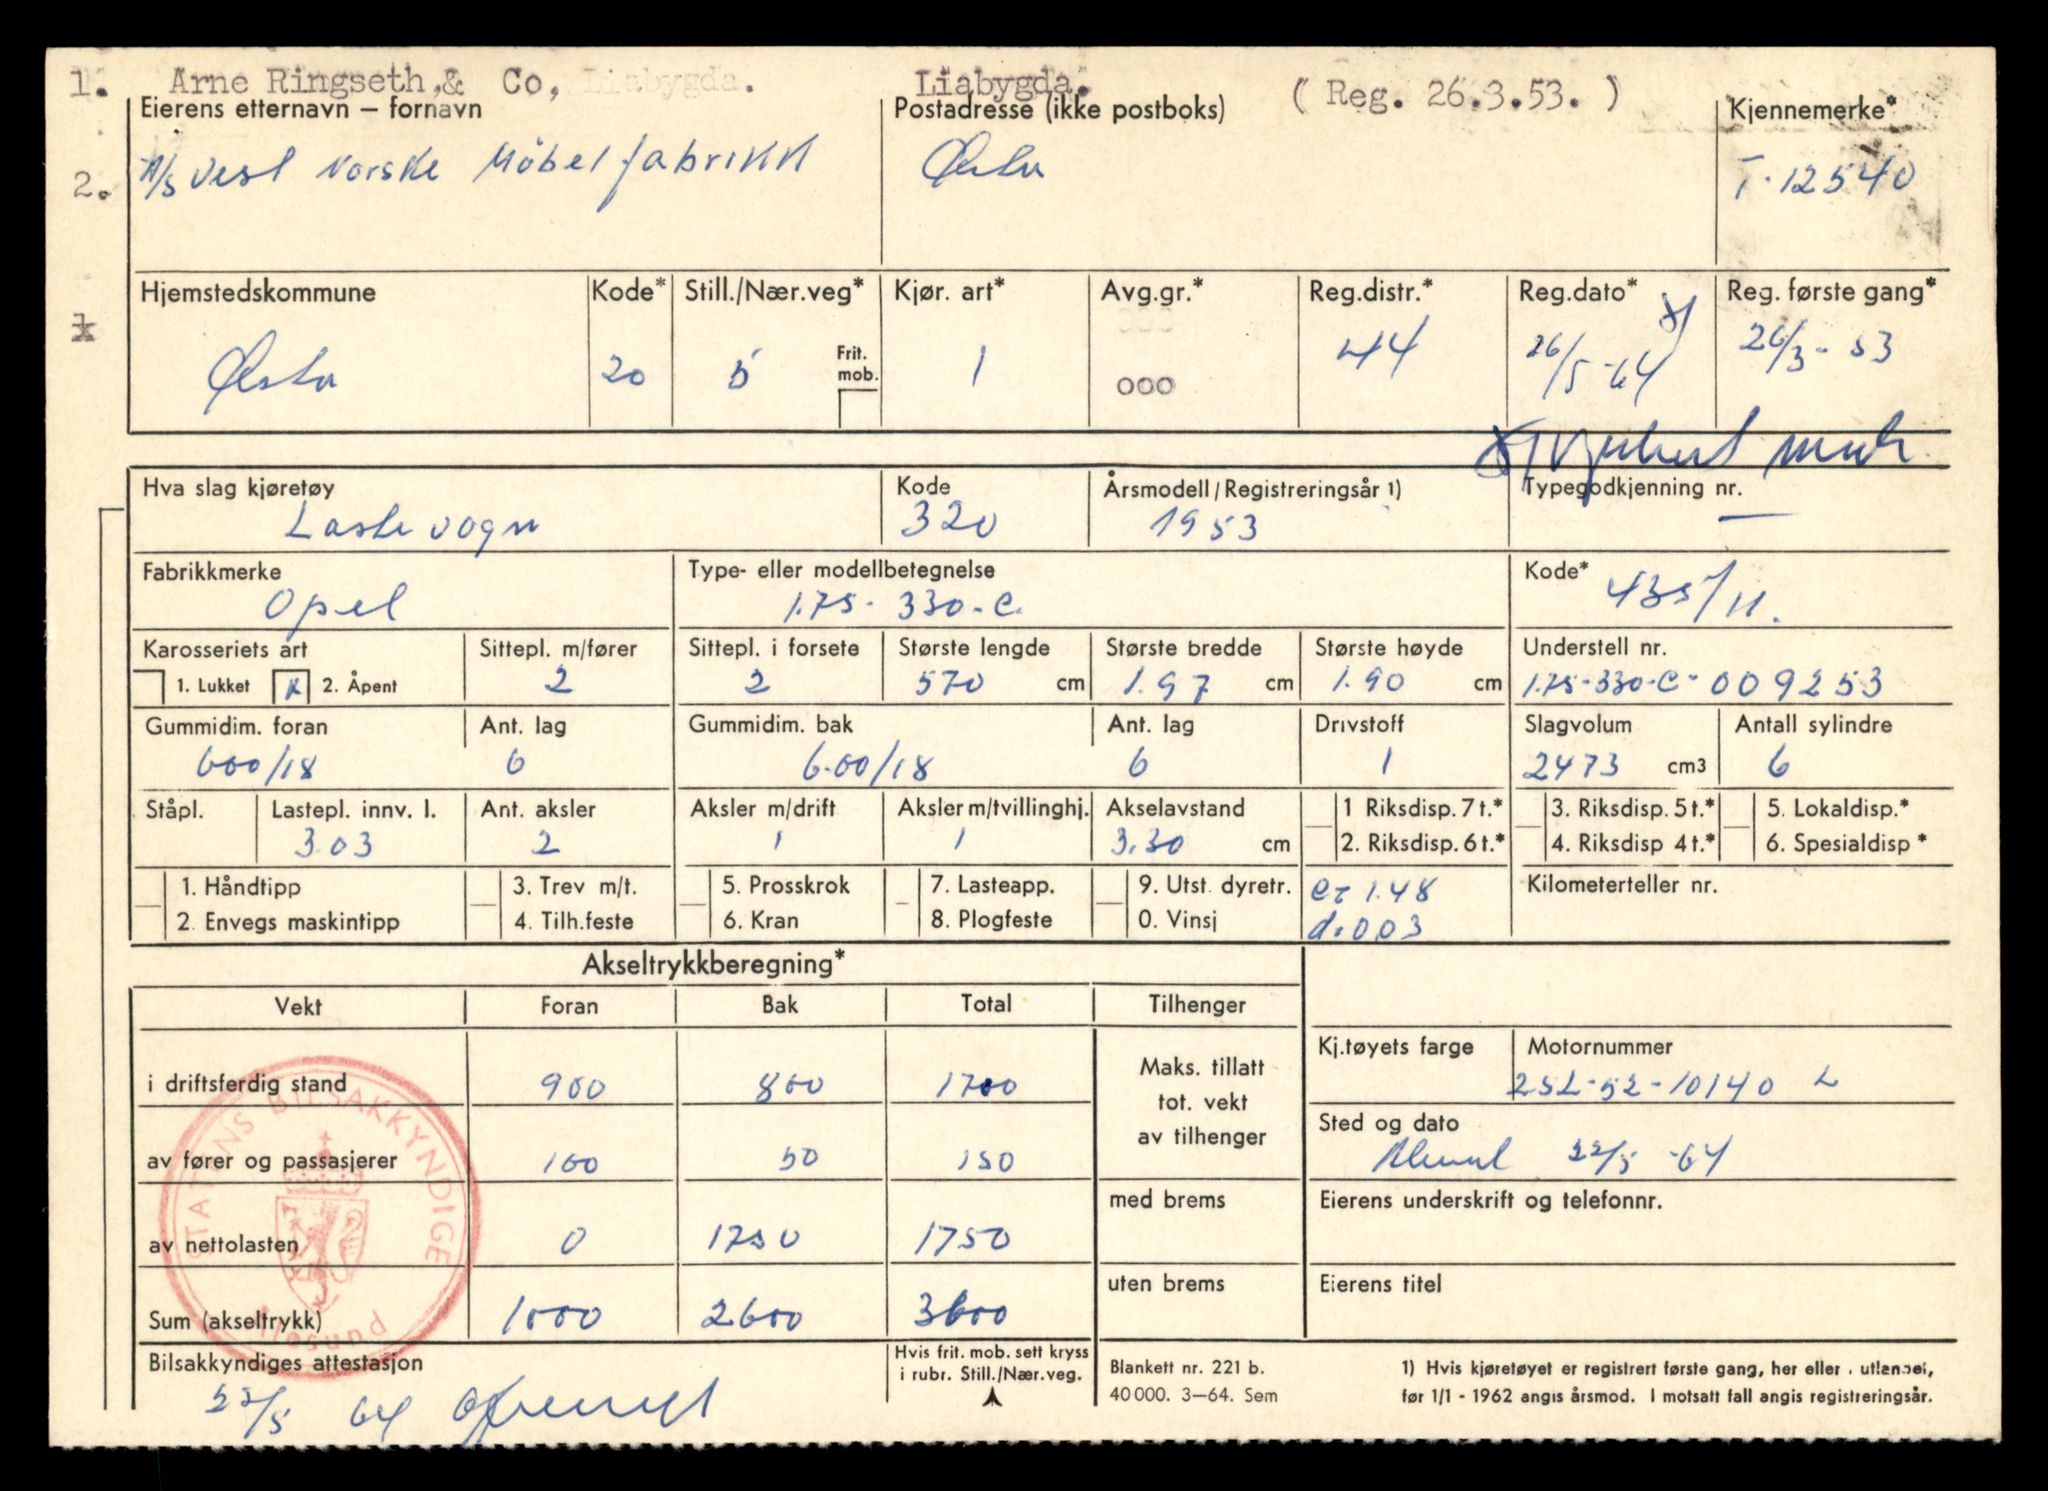 1. Arne Ringseth,& Co, Liabygda. Liabygda. ( Reg. 26.3.53. )
Eierens etternavn – fornavn Postadresse (ikke postboks) Kjennemerke*
2. A/S Vest Norske Möbelfabrikk Ørsta T-12540
Hjemstedskommune Kode* Still./Nær.veg* Kjør. art* Avg.gr.* Reg.distr.* Reg.dato* Reg. første gang*
000
Ørsta 20 5 Frit. mob. 1 000 44 26/5-64 26/3-53
Hva slag kjøretøy Kode Årsmodell/Registreringsår 1) Typegodkjenning nr.
Lastevogn 320 1953 —
Fabrikkmerke Type- eller modellbetegnelse Kode*
Opel 1.75-330-C. 435/11.
Karosseriets art Sittepl. m/fører Sittepl. i forsete Største lengde Største bredde Største høyde Understell nr.
1. Lukket x 2. Åpent 2 2 570 cm 1.97 cm 1.90 cm 1.75-330-C-009253
Gummidim. foran Ant. lag Gummidim. bak Ant. lag Drivstoff Slagvolum Antall sylindre
600/18 6 6.00/18 6 1 2473 cm3 6
Ståpl. Lastepl. innv. l. Ant. aksler Aksler m/drift Aksler m/tvillinghj. Akselavstand 1 Riksdisp. 7 t.* 3. Riksdisp. 5 t.* 5. Lokaldisp.*
3.03 2 1 1 3.30 cm 2. Riksdisp. 6 t.* 4. Riksdisp 4 t.* 6. Spesialdisp *
1. Håndtipp 3. Trev m/t. 5. Prosskrok 7. Lasteapp. 9. Utst. dyretr. c= 1.48 Kilometerteller nr.
2. Envegs maskintipp 4. Tilh.feste 6. Kran 8. Plogfeste 0. Vinsj d.003
Akseltrykkberegning*
Vekt Foran Bak Total Tilhenger
Kj.tøyets farge Motornummer
i driftsferdig stand 900 800 1700 Maks. tillatt 25L-52-10140 L
tot. vekt
av tilhenger
Sted og dato
av fører og passasjerer 100 50 150 22/5-64
med brems Eierens underskrift og telefonnr.
av nettolasten 0 1750 1750
uten brems Eierens titel
Sum (akseltrykk) 1000 2600 3600
STATENS BILSAKKYNDIGE
Ålesund
Bilsakkyndiges attestasjon Hvis frit. mob. sett kryss
i rubr. Still./Nær.veg.
22/5 64
Blankett nr. 221 b.
40 000. 3–64. Sem
1) Hvis kjøretøyet er registrert første gang, her eller i utlandet,
før 1/1 - 1962 angis årsmod. I motsatt fall angis registreringsår.